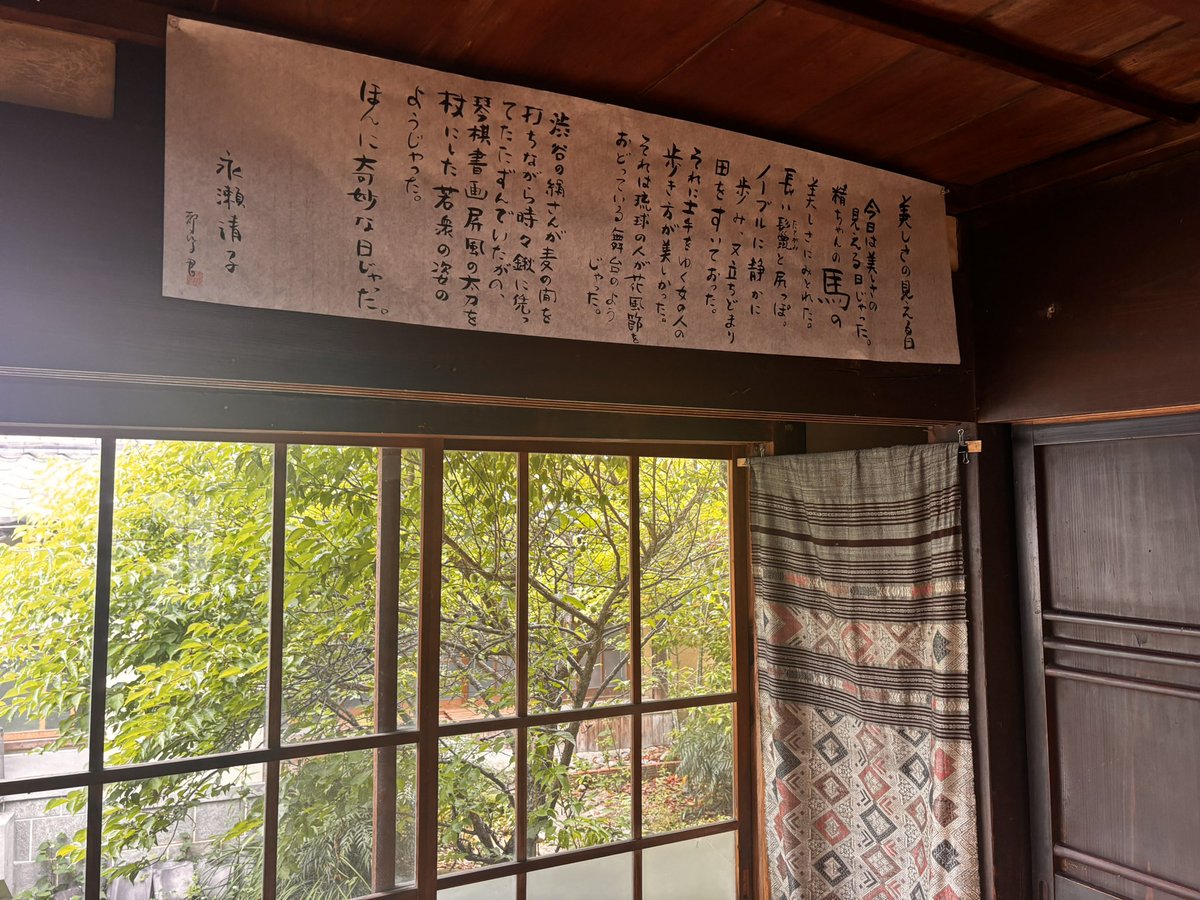 美しさの見える日
今日は美しさの
見える日じゃった。
精ちゃんの馬の
美しさにみとれた。
長い鬣と尻っぽ。
たてがみ
ノーブルに静かに
歩み、又立ちどまり
田をすいておった。
それに土手をゆく女の人の
歩き方が美しかった。
それは琉球の人が花風節を
おどっている舞台のよう
じゃった。
渋谷の絹さんが麦の間を
打ちながら時々鍬に凭っ
てたたずんでいたがの、
琴棋書画屏風の太刀を
杖にした若衆の姿の
ようじゃった。
ほんに奇妙な日じゃった。
永瀬清子